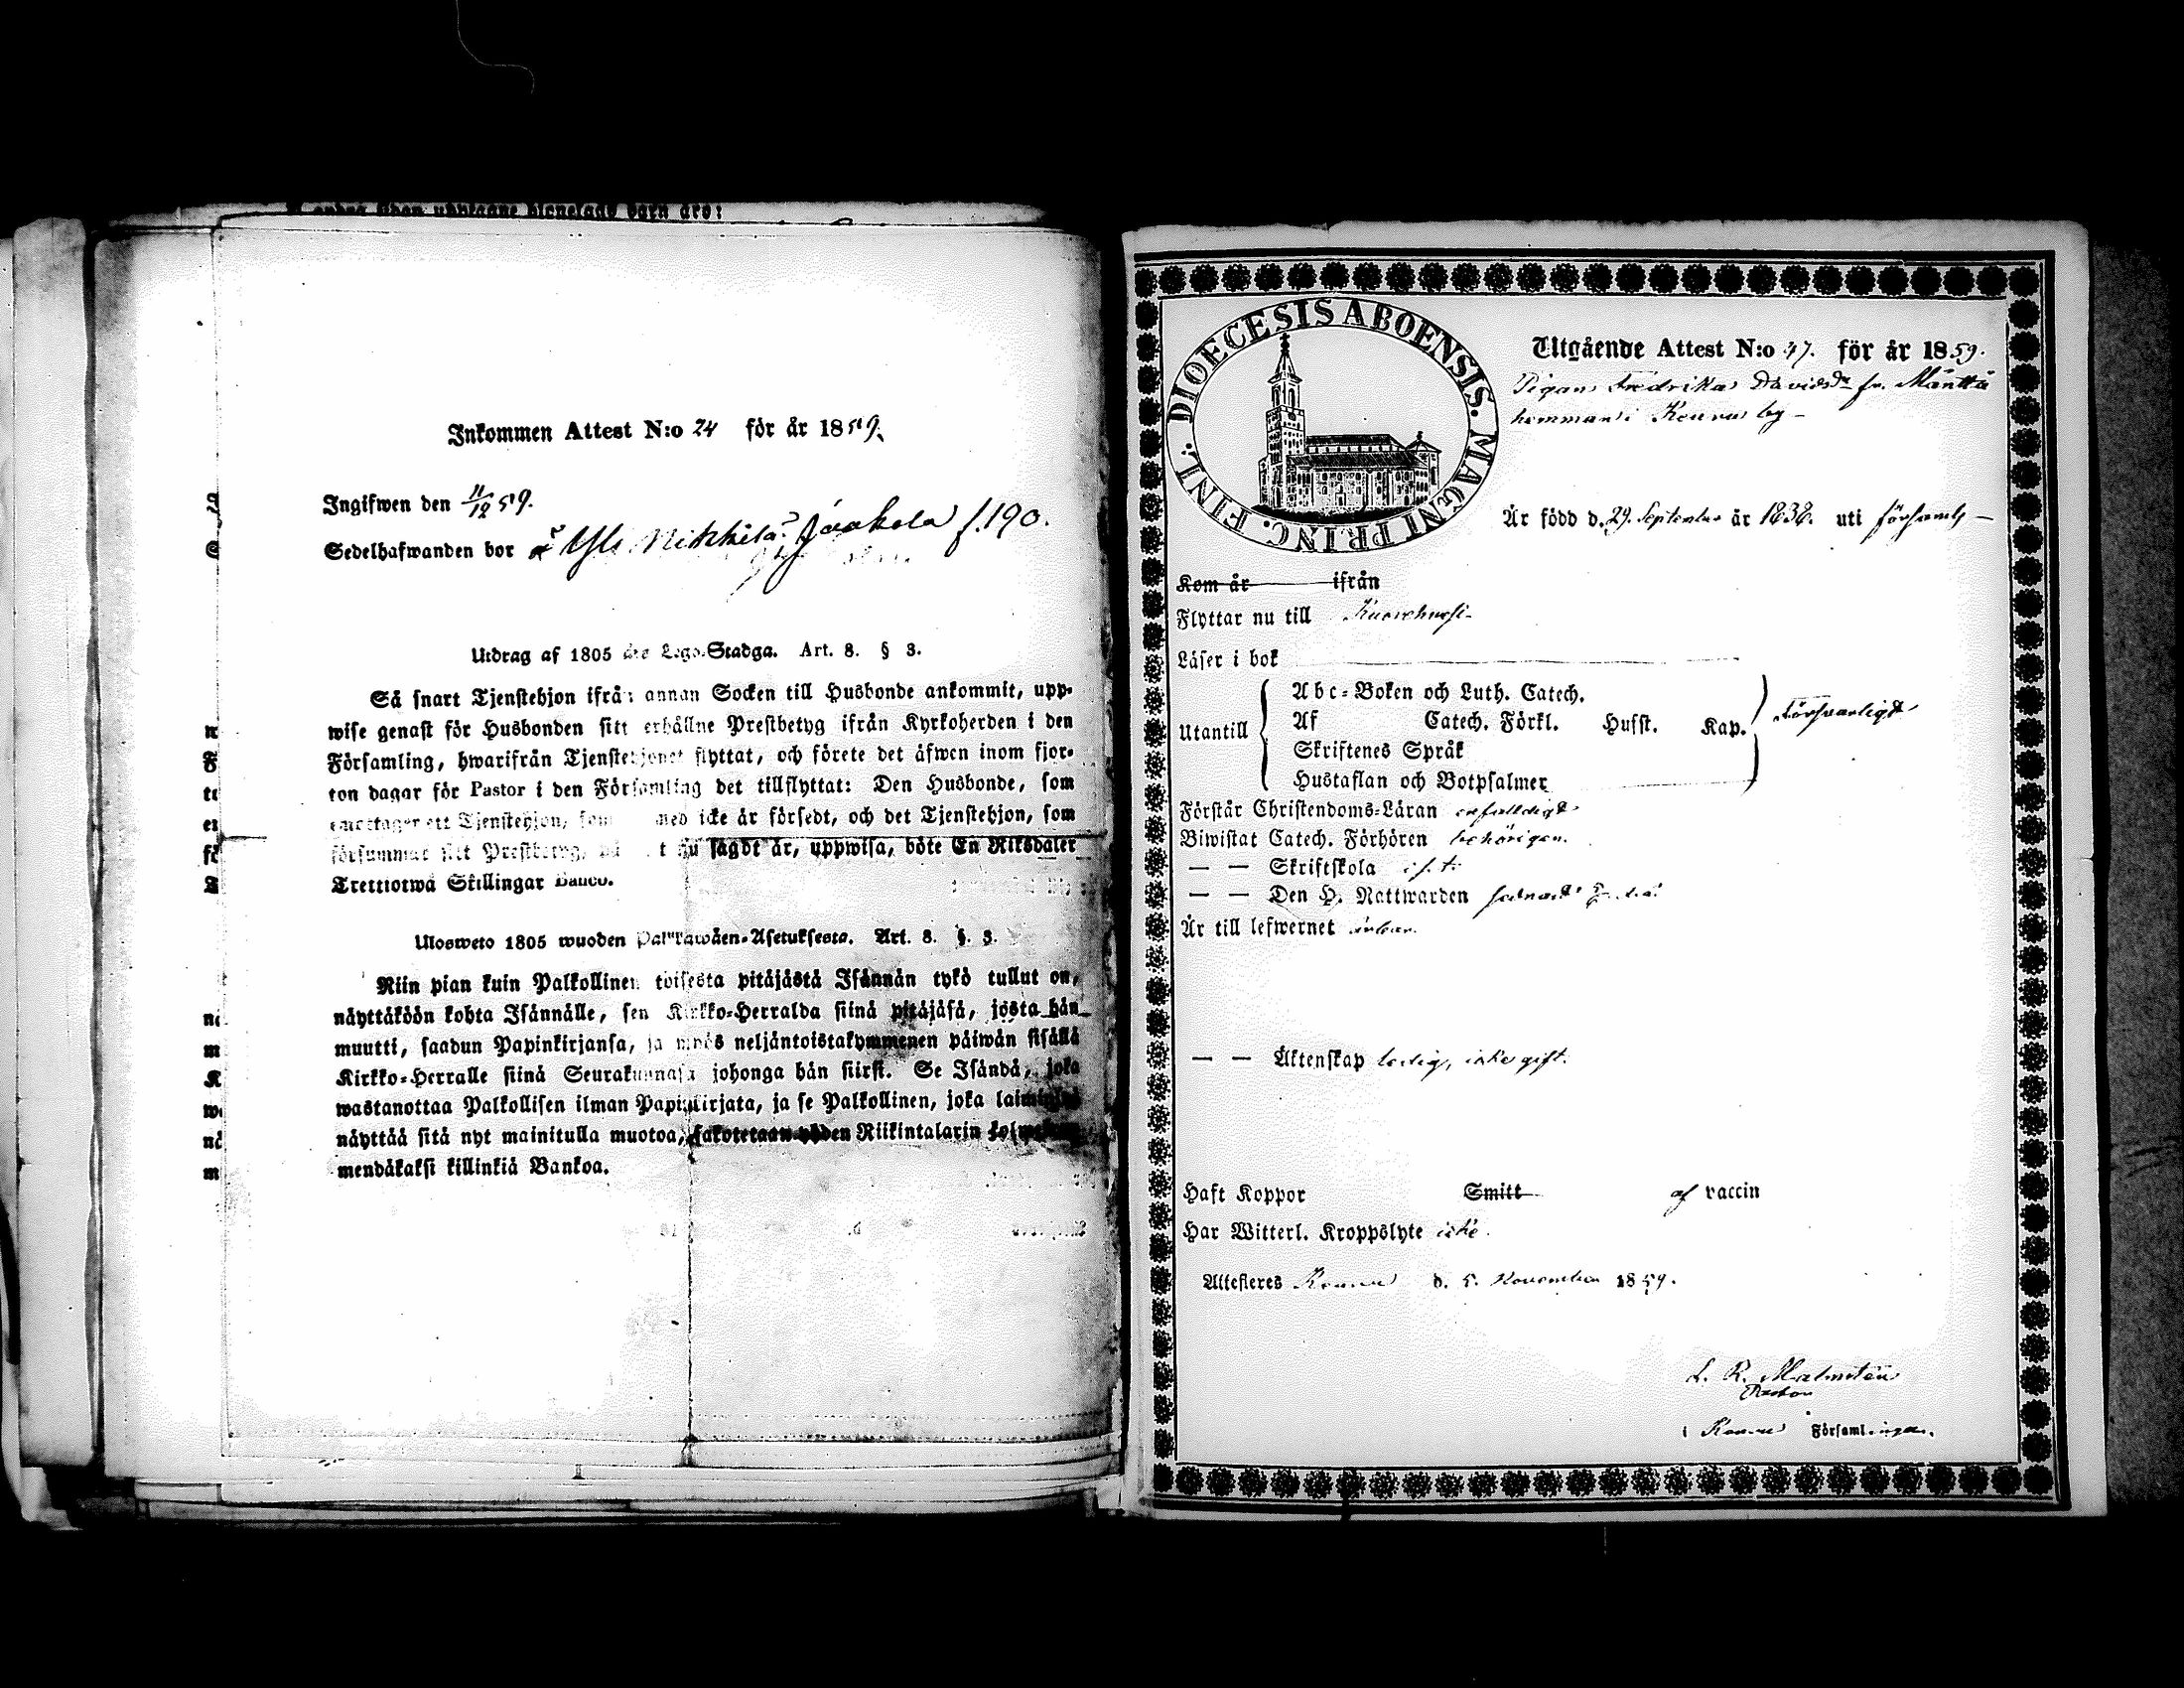 Inkommen Attest N:o 24 för år 1859.
Ingifwen den 11/12 59.
Sedelhafwanden bor å Yli Mikkilä Jaakola f. 190.
Utdrag af 1805 års Lego-Stadga. Art. 8. § 3.
Så snart Tjenstehjon ifrån annan Socken till Husbonde ankommit, upp-
wise genast för Husbonden sitt erhållne Prestbetyg ifrån Kyrkoherden i den
Församling, hwarifrån Tjenstehjonet flyttat, och förete det äfwen inom fjor-
ton dagar för Pastor i den Församling det tillflyttat: Den Husbonde, som
emottager ett Tjenstehjon, som med icke är försedt, och det Tjenstehjon, som
försummar sitt Prestbetyg, på nu sagdt är, uppwisa, böte En Riksdaler
Trettiotwå Skillingar Banco.
Ulosweto 1805 wuoden Palkkawäen-Asetuksesta. Art. 8. §. 3.
Niin pian kuin Palkollinen toisesta pitäjästä Isännän tykö tullut on,
näyttäköön kohta Isännälle, sen Kirkko-Herralda siinä pitäjäsä, josta hän
muutti, saadun Papinkirjansa, ja myös neljäntoistakymmenen päiwän sisällä
Kirkko-Herralle siinä Seurakunnasa johonga hän siirsi. Se Isändä, joka
wastanottaa Palkollisen ilman Papinkirjata, ja se Palkollinen, joka laiminlyö
näyttää sitä nyt mainitulla muotoa, sakotetaan yhden Riikintalarin kolmekym-
mendäkaksi killinkiä Bankoa.
DIOECESIS ABOENSIS. MAGNI PRINC. FINL.
Utgående Attest N:o 47. för år 1859.
Pigan Fredrika Davidsdr fr. Mänttä
hemman i Keuru by –
Är född d. 29. September år 1838. uti församlg –
Kom år ifrån
Flyttar nu till Kuorehvesi
Läser i bok
Abc-Boken och Luth. Catech.
Utantill Af Catech. Förkl. Husst. Kap. Försvarligt
Skriftenes Språk
Hustaflan och Botpsalmer
Förstår Christendoms-Läran enfaldigt
Biwistat Catech. Förhören behörigen.
— — Skriftskola
— — Den H. Nattwarden
Är till lefwernet ärbar.
— — Äktenskap ledig, icke gift.
Haft Koppor Smitt af vaccin
Har Witterl. Kroppslyte icke.
Attesteres Keuru d. 5. November 1859.
L. R. Malmstén
Pastor
i Keuru Församlingen.